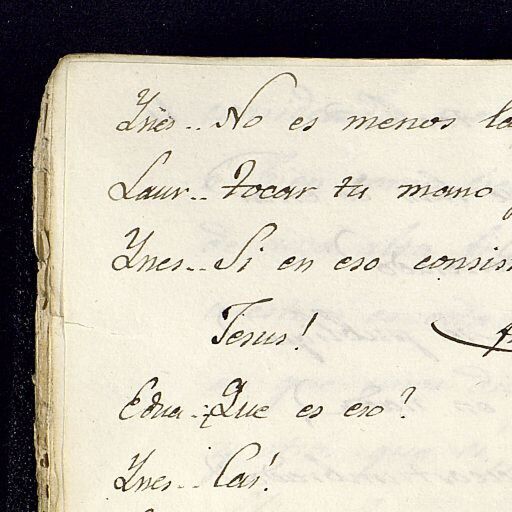 Ynes.. No es menos la
Laur.. tocar tu mano
Ynes.. Si en eso consis
Jesus!
Edua.. Que es eso?
Ynes.. Cai!